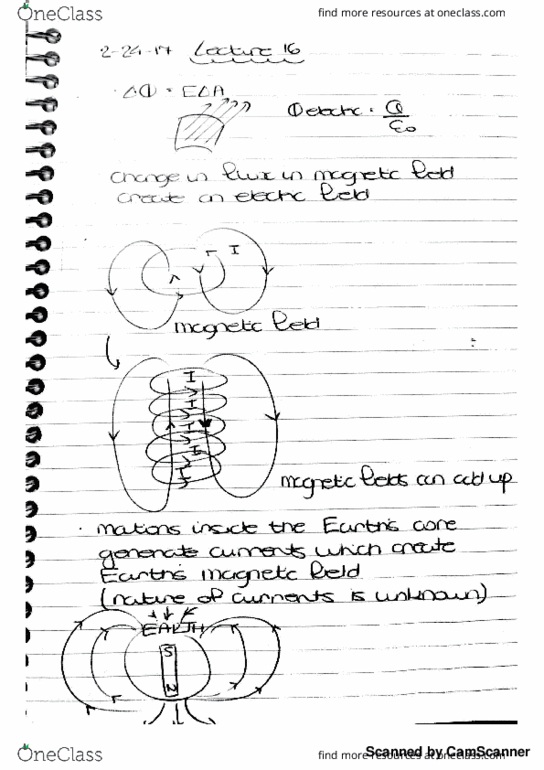 OneClass
find more resources at oneclass.com
2-24-17 Lecture 16
· ΔΦ = EΔA
Φelectric = Q/ε₀
change in flux in magnetic field
create an electric field
I
magnetic field
I
I
I
I
I
magnetic fields can add up
· motions inside the Earth's core
generate currents which create
Earth's magnetic field
(nature of currents is unknown)
EARTH
S
N
OneClass
find more resources at oneclass.com
Scanned by CamScanner